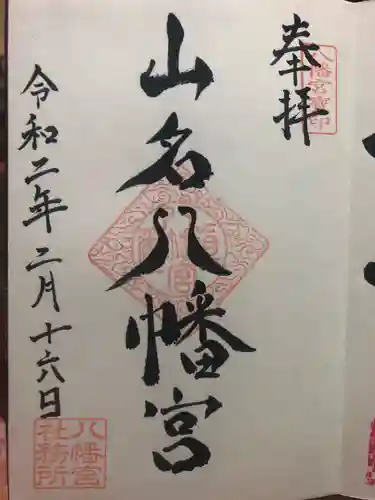 奉拝
八幡宮寳印
山名八幡宮
令和二年二月十六日
八幡宮
社務所